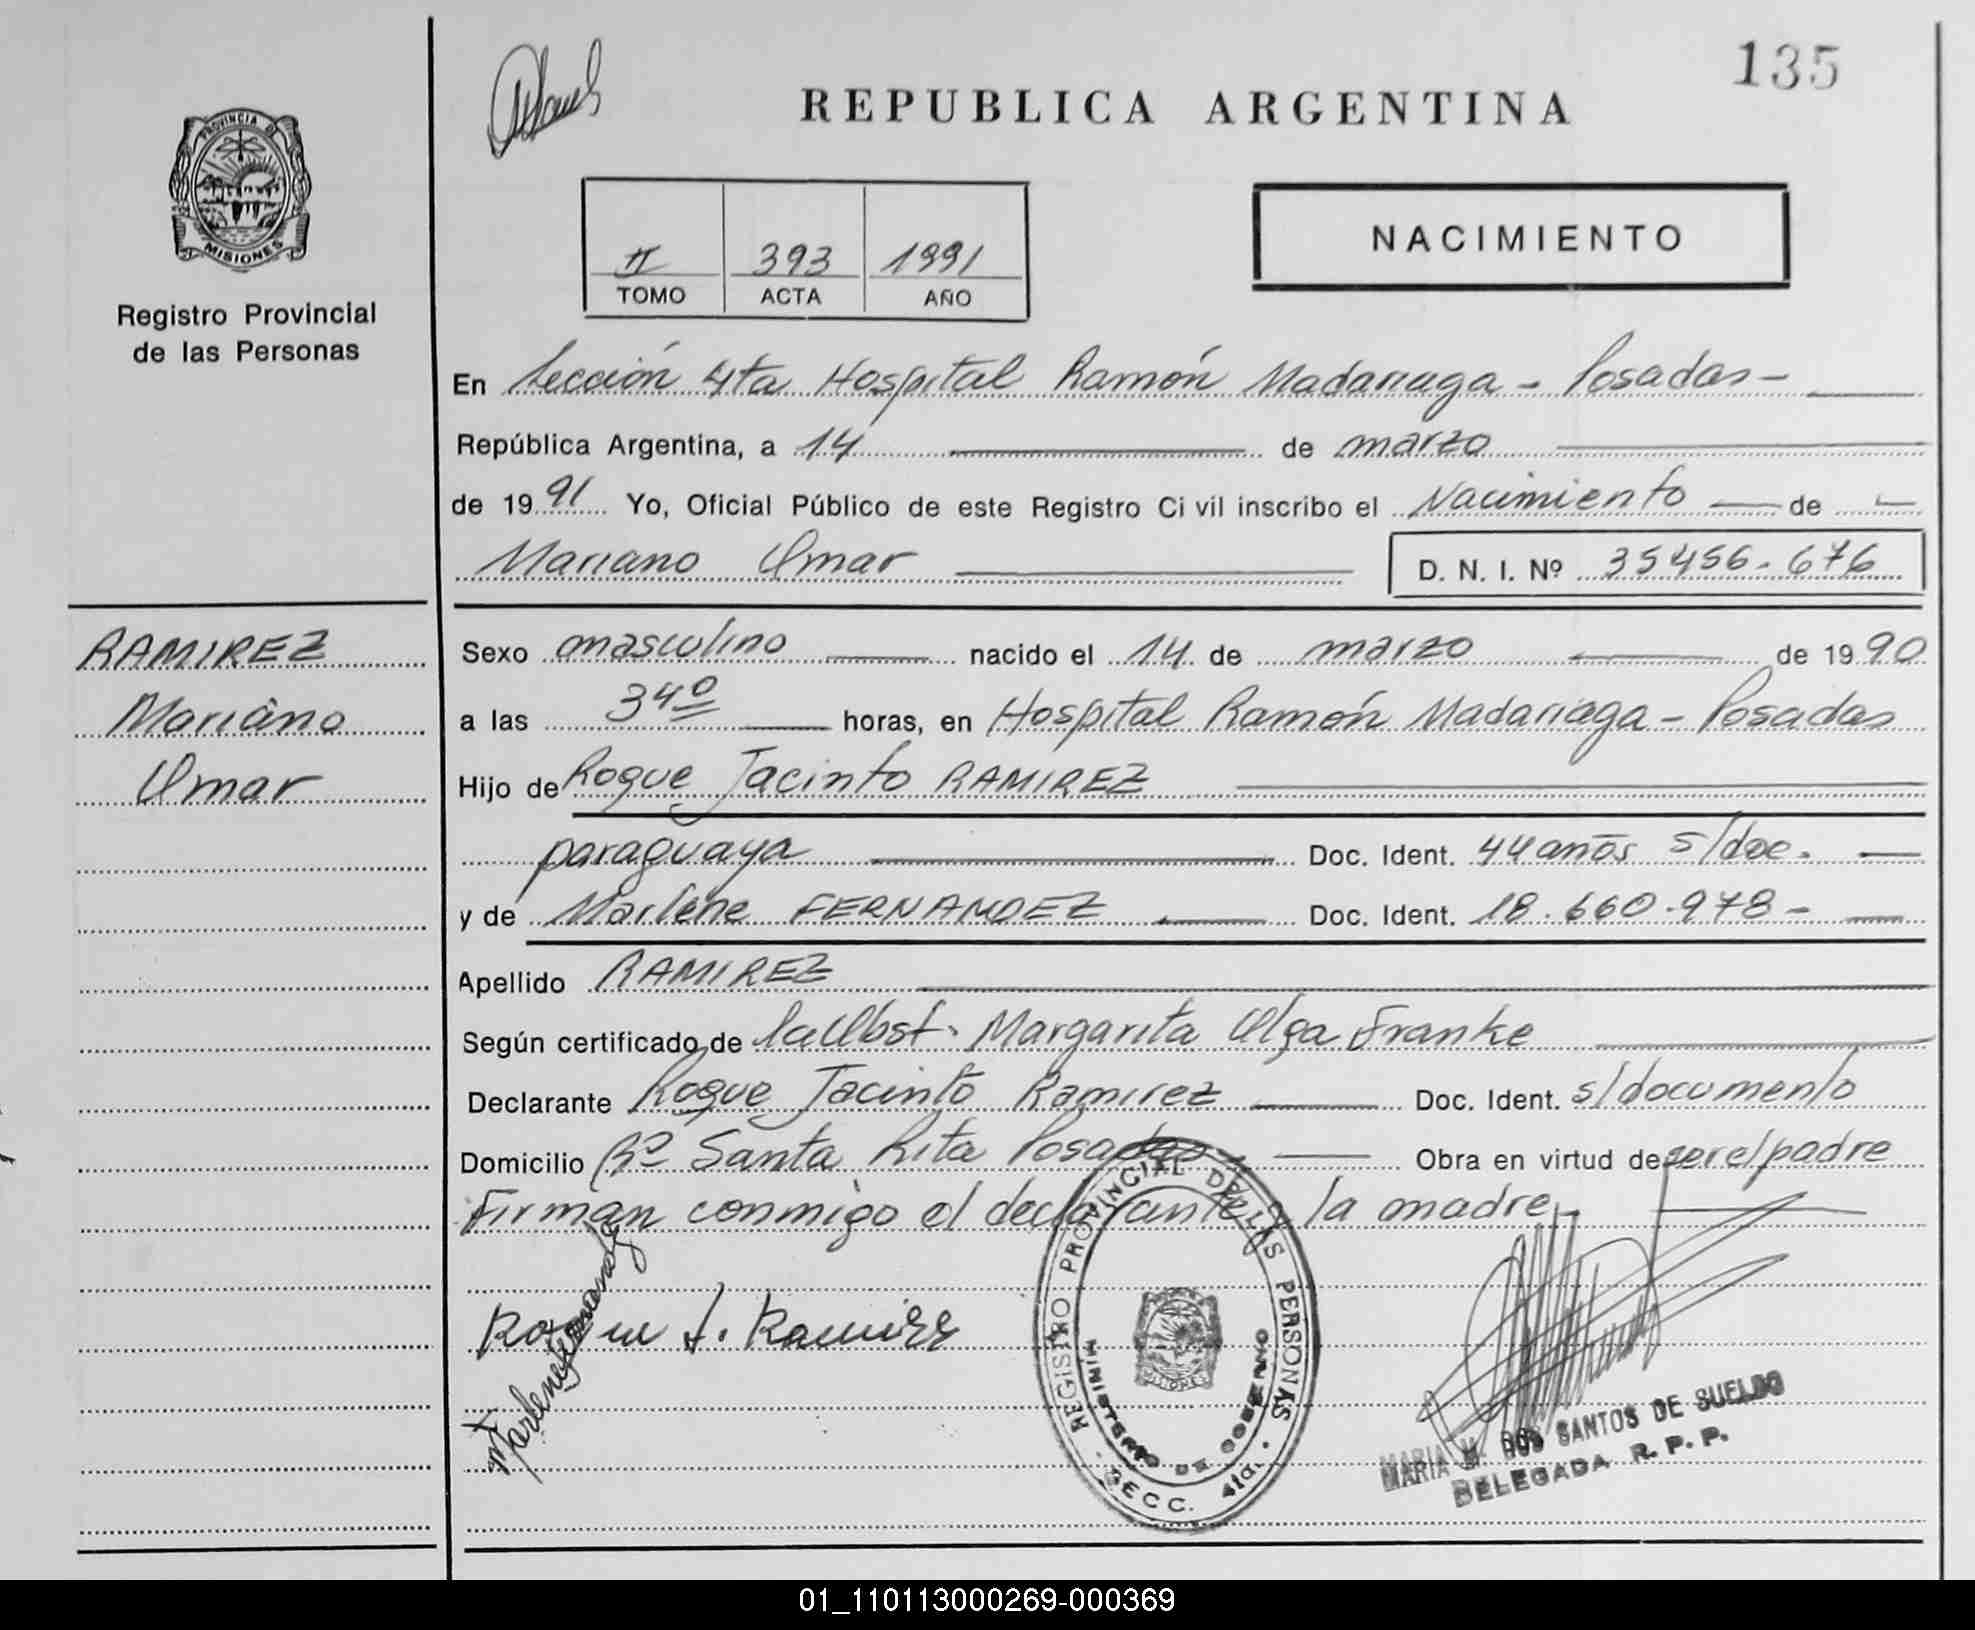 135
REPUBLICA ARGENTINA
PROVINCIA DE
MISIONES
Registro Provincial
de las Personas
NACIMIENTO
II 393 1991
TOMO ACTA AÑO
En Sección 4ta Hospital Ramón Madariaga - Posadas -
República Argentina, a 14 de marzo
de 1991 Yo, Oficial Público de este Registro Civil inscribo el Nacimiento de
Mariano Omar D. N. I. Nº 35456-676
RAMIREZ
Mariano
Omar
Sexo masculino nacido el 14 de marzo de 1990
a las 34º horas, en Hospital Ramón Madariaga - Posadas
Hijo de Roque Jacinto RAMIREZ
paraguaya Doc. Ident. 44 años s/doc.
y de Marlene FERNANDEZ Doc. Ident. 18.660.978-
Apellido RAMIREZ
Según certificado de la Obst. Margarita Olga Franke
Declarante Roque Jacinto Ramirez Doc. Ident. s/documento
Domicilio Bº Santa Rita Posadas Obra en virtud de ser el padre
Firman conmigo el declarante y la madre
Roque J. Ramirez
Marlene Fernandez
REGISTRO PROVINCIAL DE LAS PERSONAS
MINISTERIO DE GOBIERNO
SECC. 4ta.
MARIA M. DOS SANTOS DE SUELDO
DELEGADA R. P. P.
01_110113000269-000369